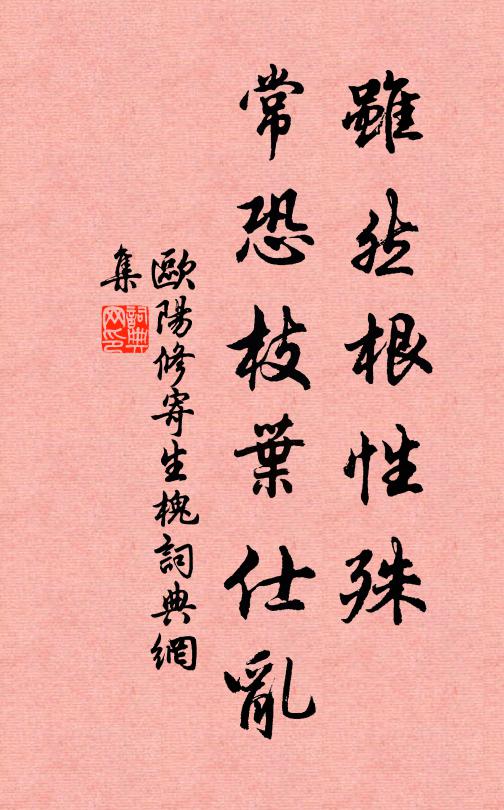 雖然根性殊
常恐枝葉仕亂
歐陽修寄生槐詞典網
集
詞典网印